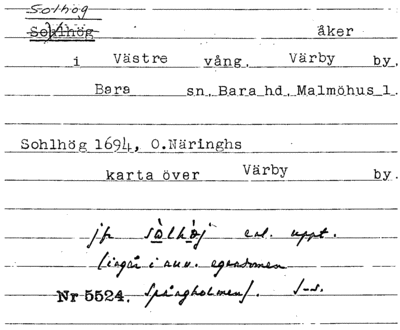 Solhög
Sohlhög åker
i Västre vång. Värby by.
Bara sn. Bara hd. Malmöhus l.
Sohlhög 1694, O.Näringhs
karta över Värby by.
jfr sòlhòj enl. uppt.
(ingår i nuv. egendomen
Nr 5524. Spångholmen).